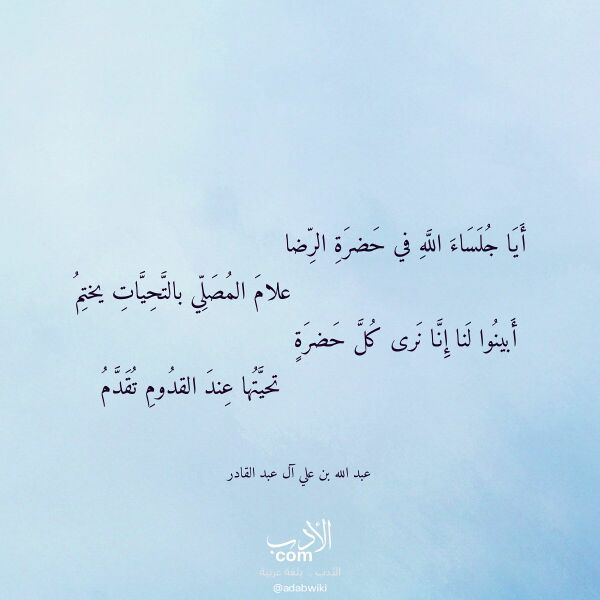 أَيَا جُلَسَاءَ اللَّهِ في حَضرَةِ الرِّضا
علامَ المُصَلِّي بالتَّحِيَّاتِ يختِمُ
أَبينُوا لَنا إِنَّا نَرى كُلَّ حَضرَةٍ
تحيَّتُها عِندَ القدُومِ تُقَدَّمُ
عبد الله بن علي آل عبد القادر
الأدب
com
الأدب .. بلغة عربية
@adabwiki